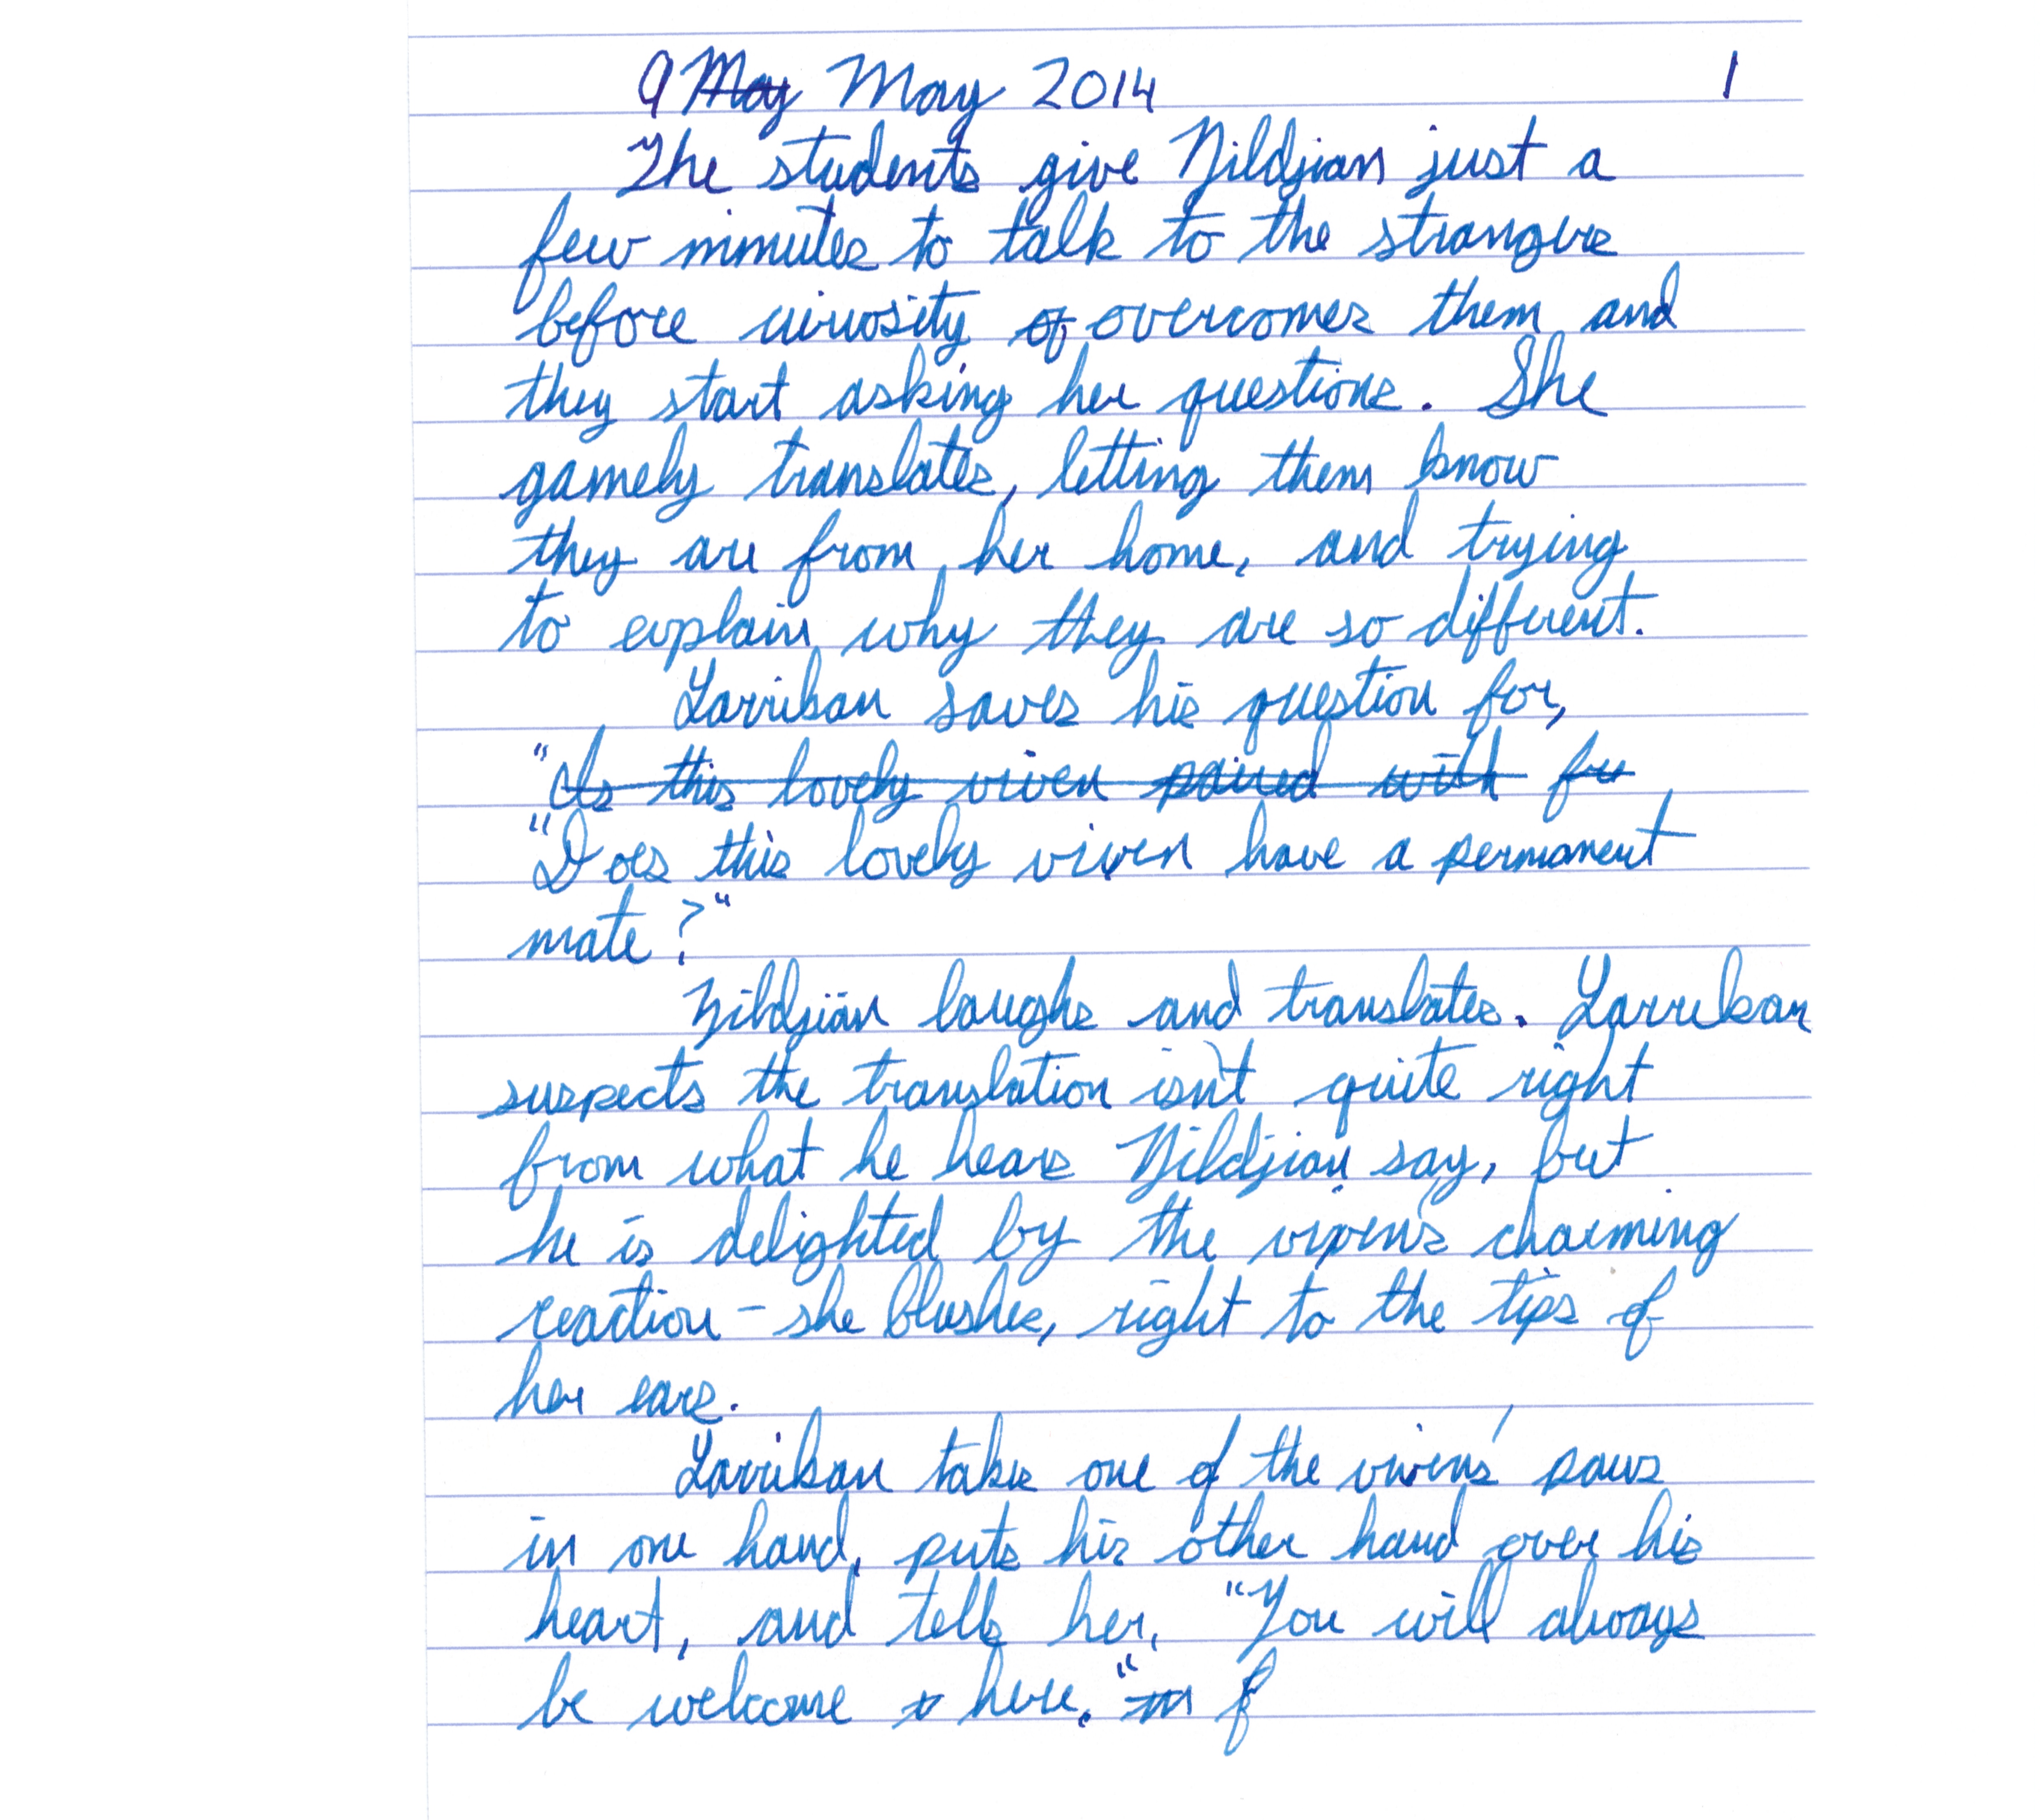 9 May May 2014 1
The students give Zildjian just a
few minutes to talk to the strangers
before curiosity of overcomes them and
they start asking her questions. She
gamely translates, letting them know
they are from her home, and trying
to explain why they are so different.
Larrikan saves his question for,
"Is this lovely vixen paired with fu
"Does this lovely vixen have a permanent
mate?"
Zildjian laughs and translates. Larrikan
suspects the translation isn't quite right
from what he hears Zildjian say, but
he is delighted by the vixen's charming
reaction – she blushes, right to the tips of
her ears.
Larrikan takes one of the vixen's paws
in one hand, puts his other hand over his
heart, and tells her, "You will always
be welcome here."